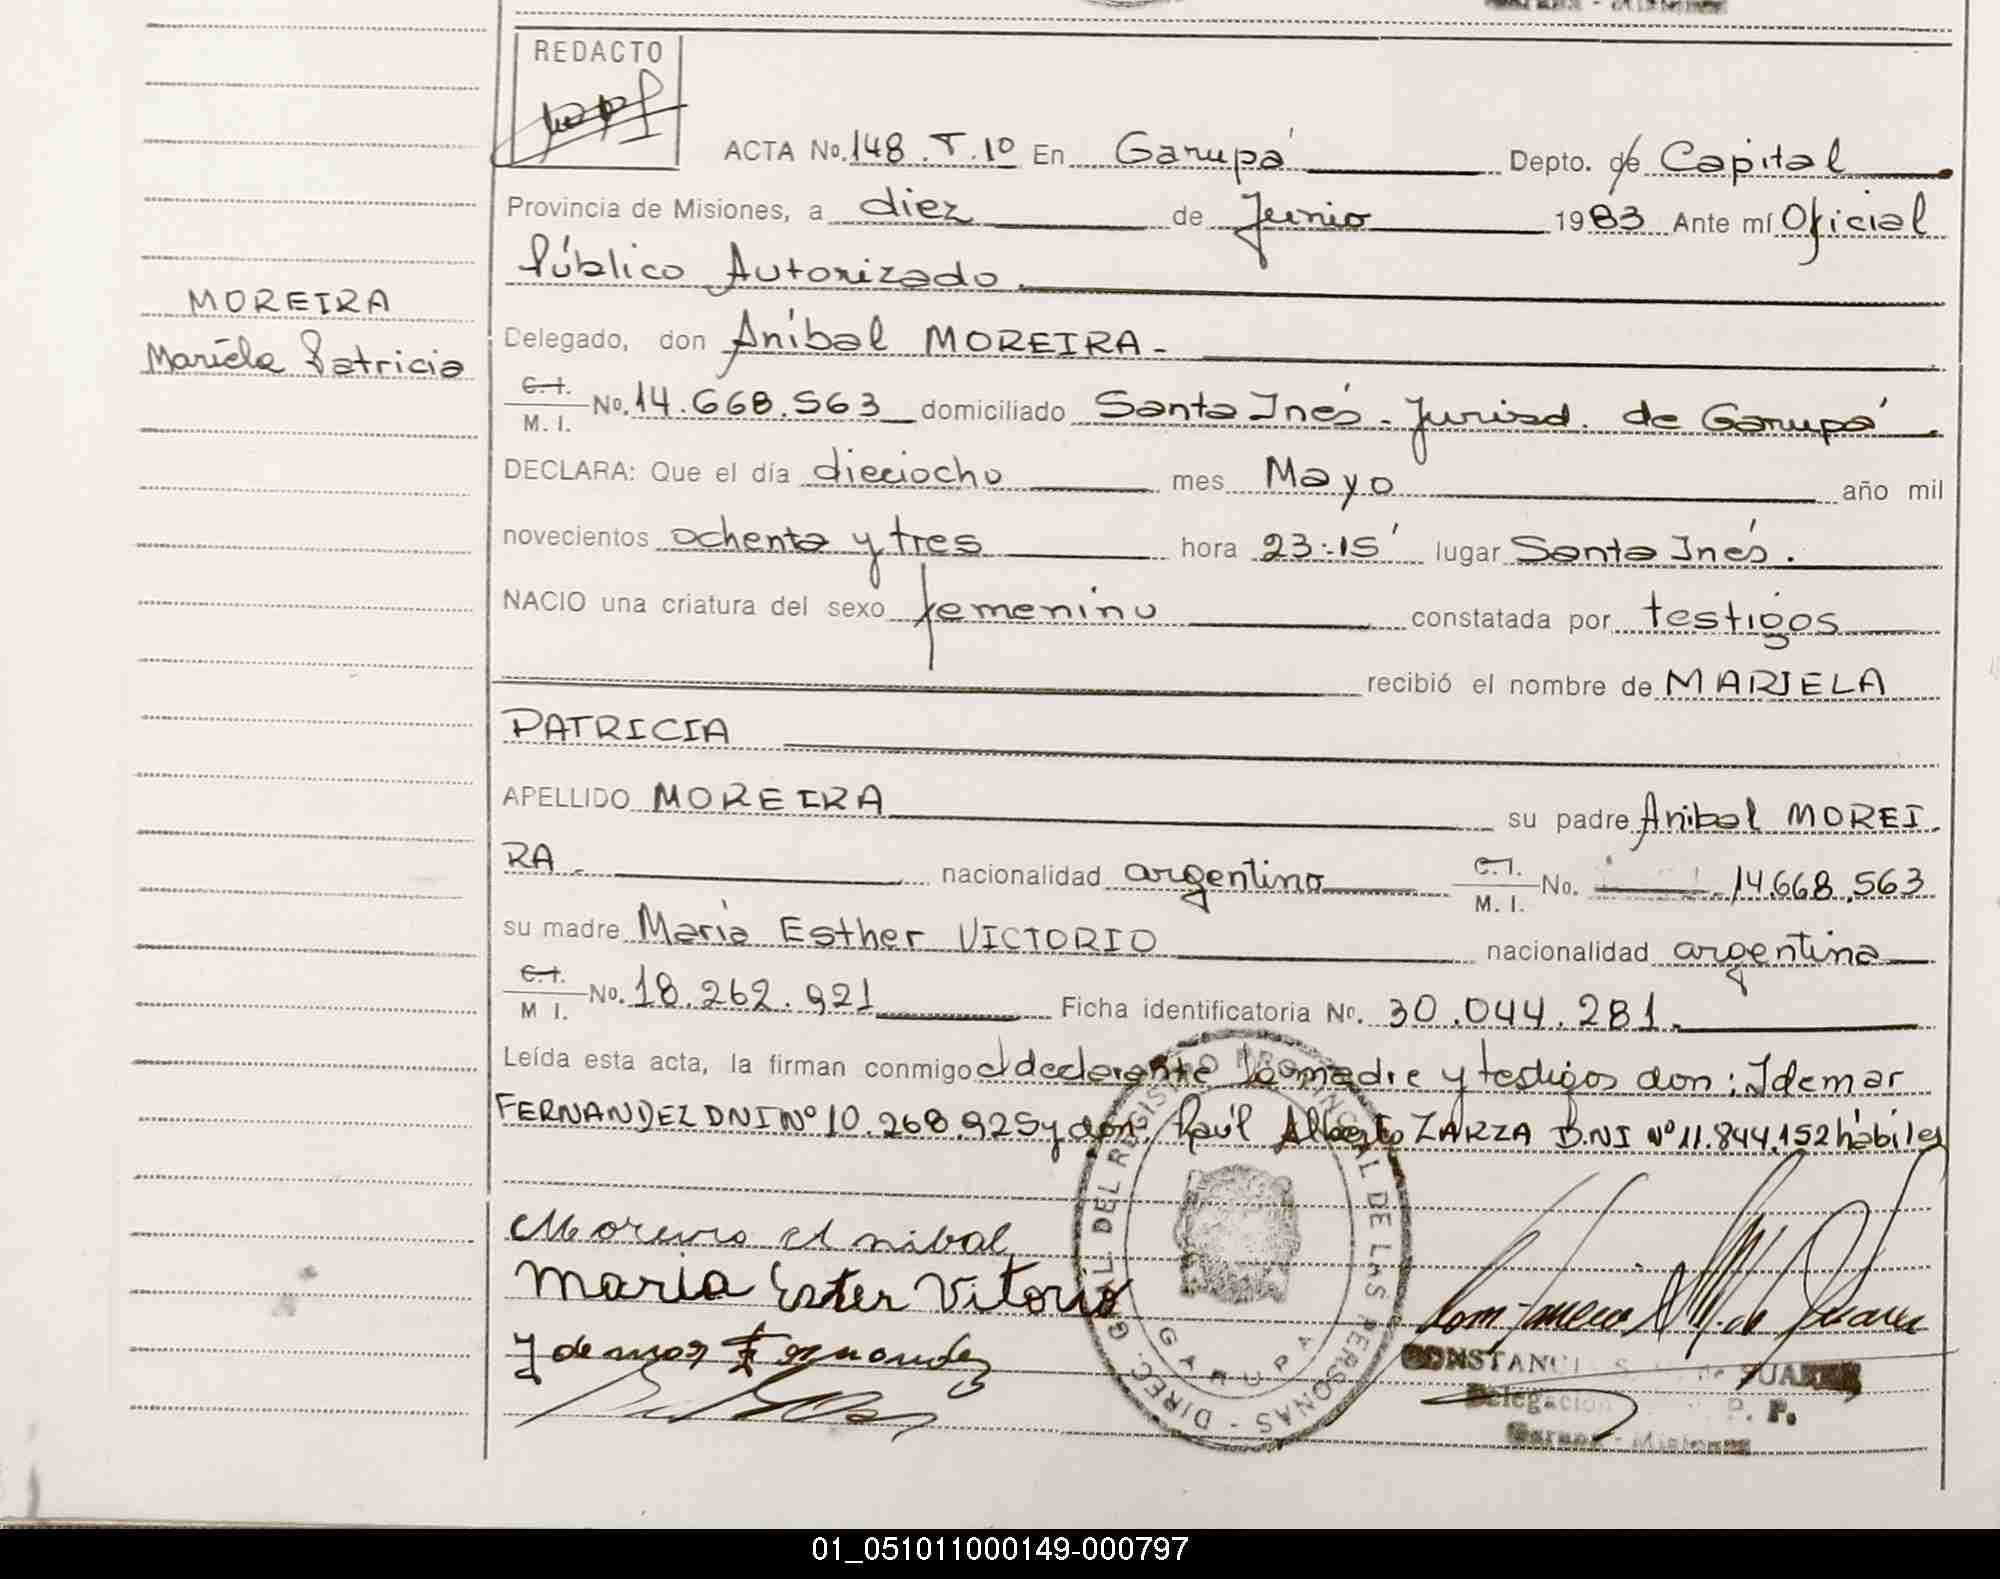 REDACTO
ACTA No. 148. T. 1º En Garupá Depto. de Capital
Provincia de Misiones, a diez de Junio 1983 Ante mí Oficial
Público Autorizado.
MOREIRA
Mariela Patricia
Delegado, don Aníbal MOREIRA-
C.I. M. I. No. 14.668.563 domiciliado Santa Inés. Jurisd. de Garupá
DECLARA: Que el día dieciocho mes Mayo año mil
novecientos ochenta y tres hora 23:15' lugar Santa Inés.
NACIO una criatura del sexo femenino constatada por testigos
recibió el nombre de MARIELA
PATRICIA
APELLIDO MOREIRA su padre Anibal MOREI
RA. nacionalidad argentino C.I. M. I. No. 14.668.563
su madre María Esther VICTORIO nacionalidad argentina
C.I. M I. No. 18.262.921 Ficha identificatoria No. 30.044.281.
Leída esta acta, la firman conmigo el declarante la madre y testigos don: Idemar
FERNANDEZ DNI Nº 10.268.925 y don: Raúl Alberto ZARZA D.NI Nº 11.844.152 hábiles
Moreira Anibal
Maria Ester Vitorio
Idemar Fernandez
DIREC. GRAL. DEL REGISTRO PROVINCIAL DE LAS PERSONAS -
GARUPA
SUAREZ
Delegación
Garupa - Misiones
01_051011000149-000797